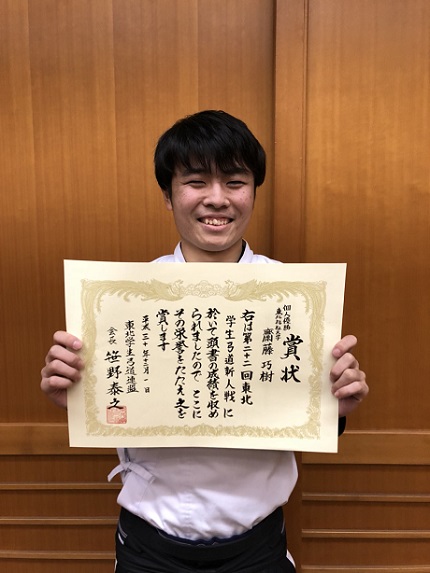 賞状
個人優勝
東北福祉大学
齋藤巧樹
右は第二十二回東北
学生弓道新人戦に
於いて頭書の成績を収め
られましたので ここに
その栄誉をたたえ之を
賞します
平成三十年十二月一日
東北学生弓道連盟
会長 笹野泰之